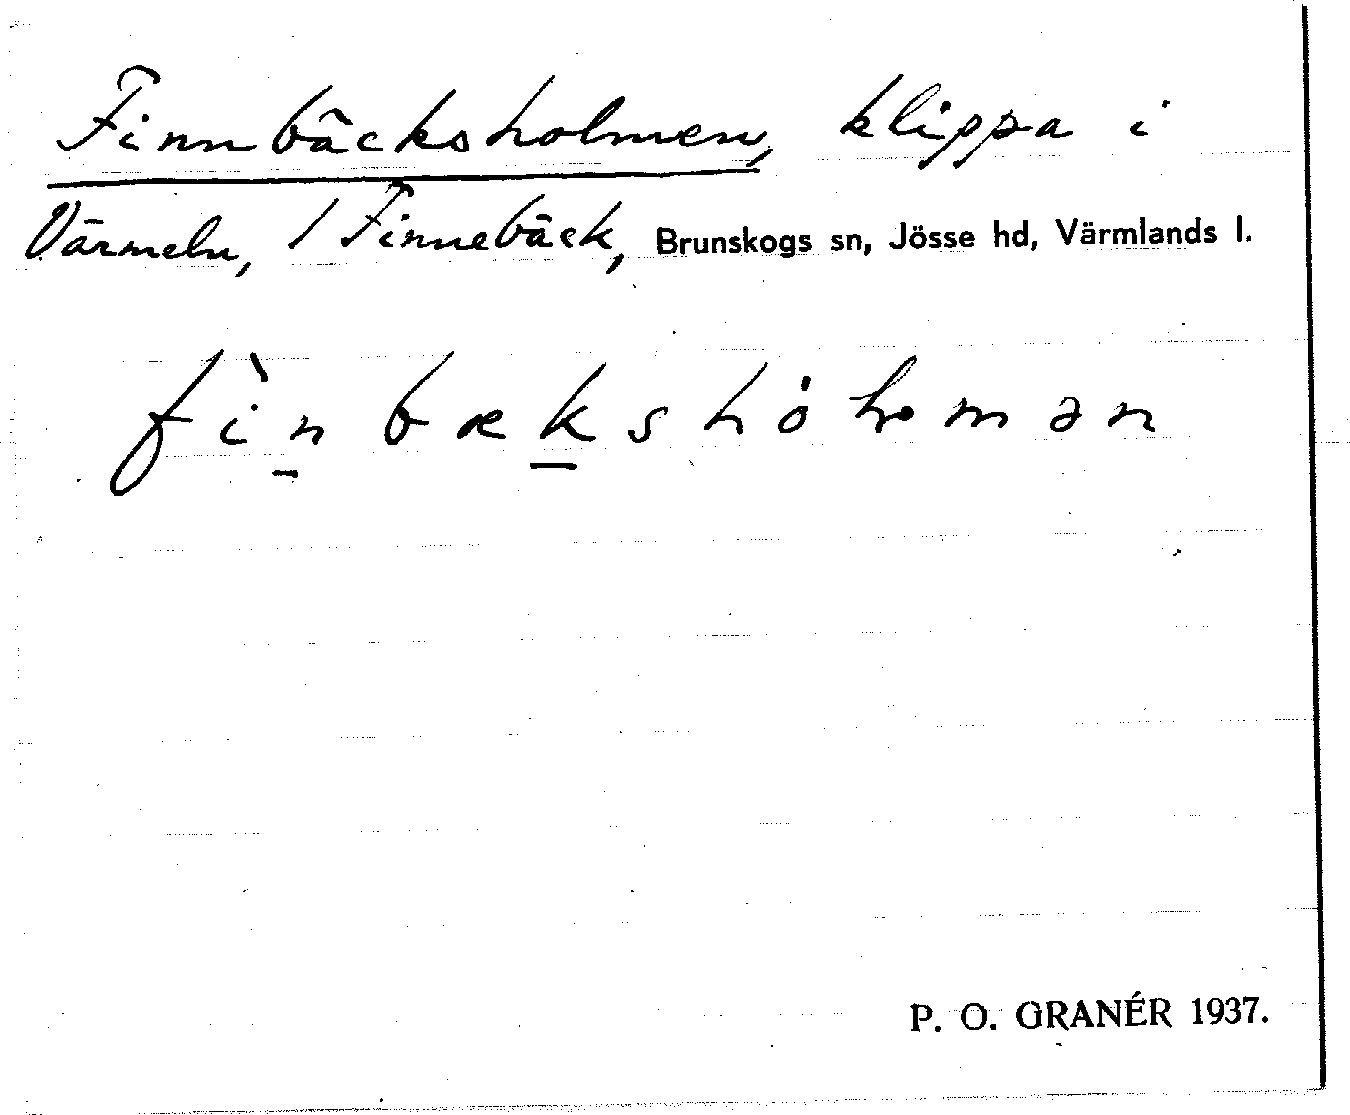 Finnbäcksholmen, klippa i
Värmeln, / Finnebäck, Brunskogs sn, Jösse hd, Värmlands l.
P. O. GRANÉR 1937.